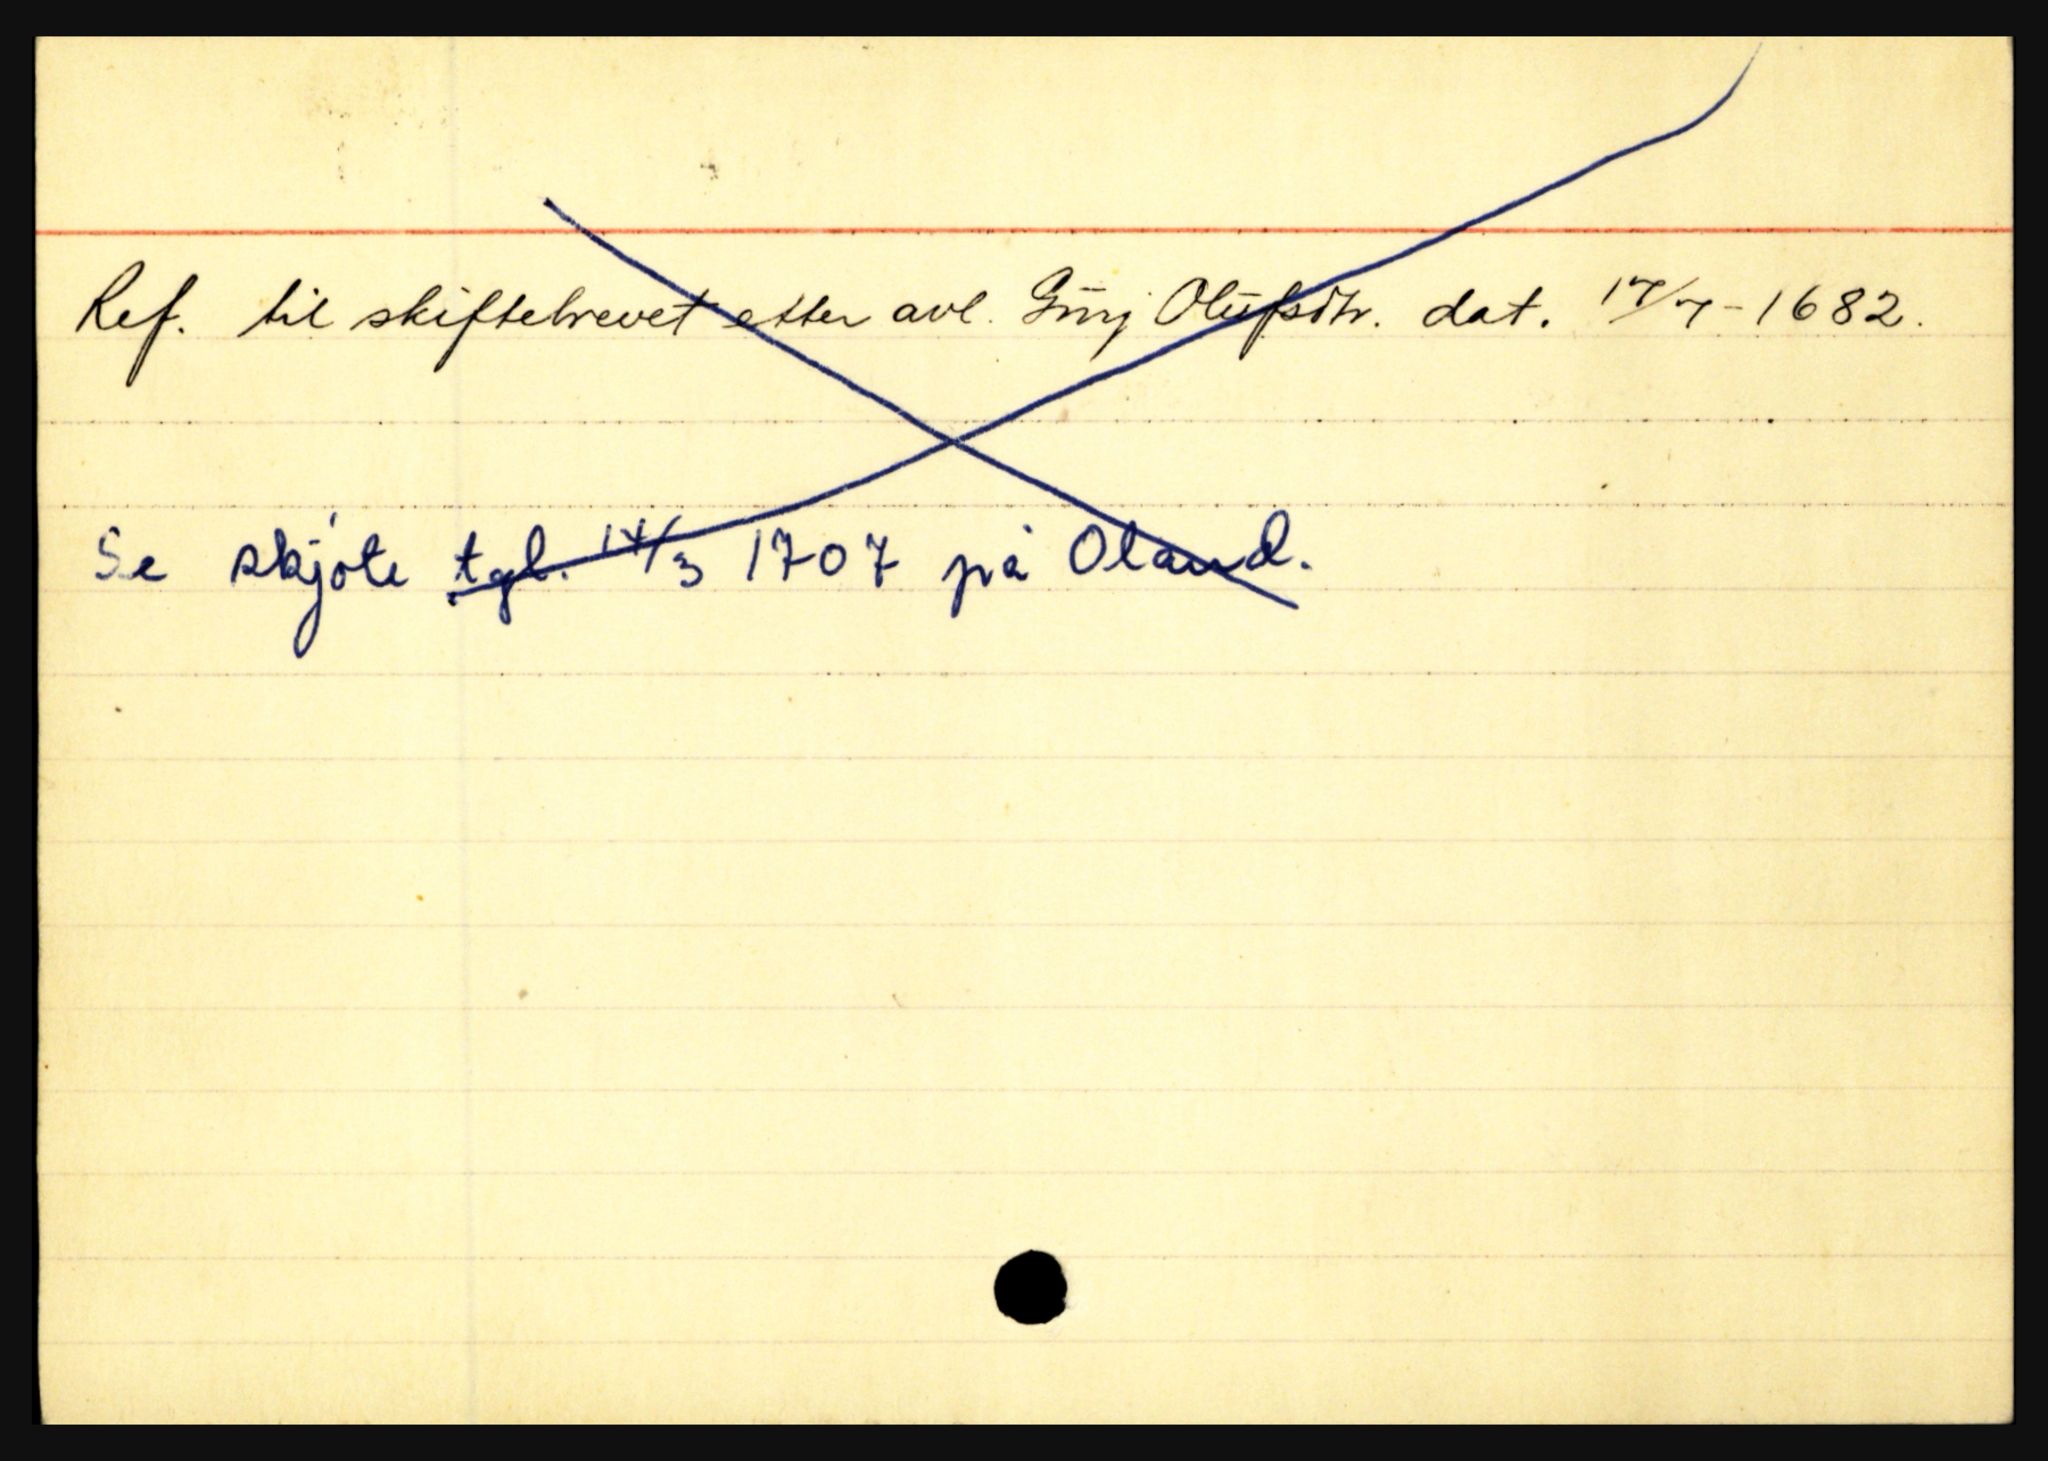 Ref. til skiftebrevet etter avl. Gurj Olufsdtr. dat. 17/7-1682.
Se skjøte tgl. 14/3 1707 på Oland.